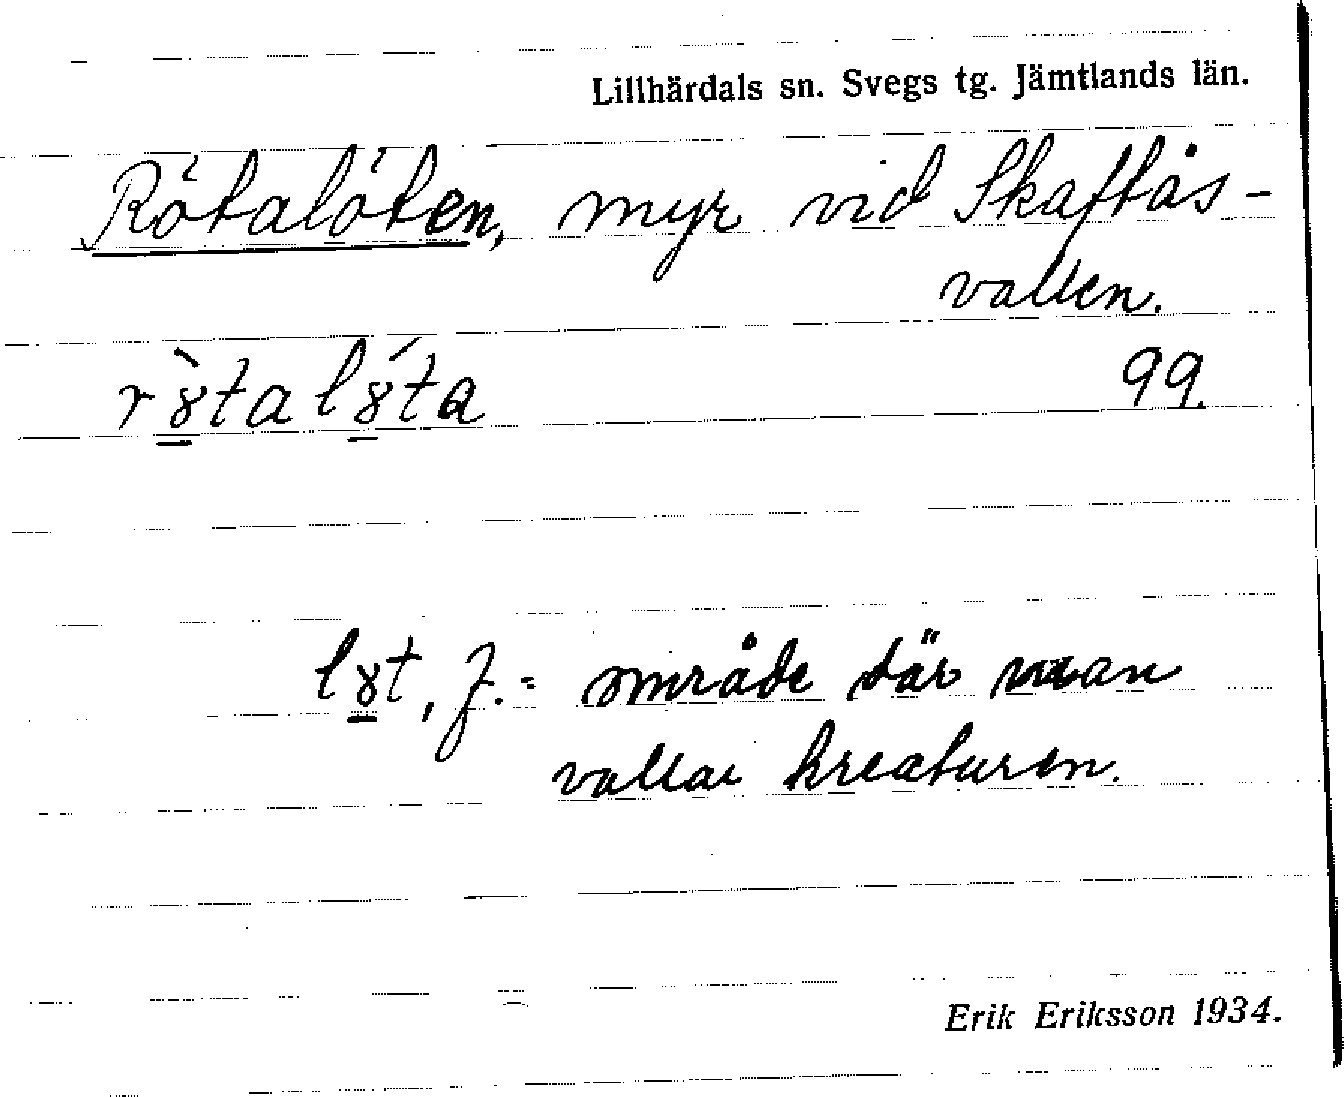 Lillhärdals sn. Svegs tg. Jämtlands län.
Rötalöten, myr vid Skaftås-
vallen.
rɣ̠̀talɣ̠́ta 99.
lɣ̠t, f. = område där man
vallar kreaturen.
Erik Eriksson 1934.